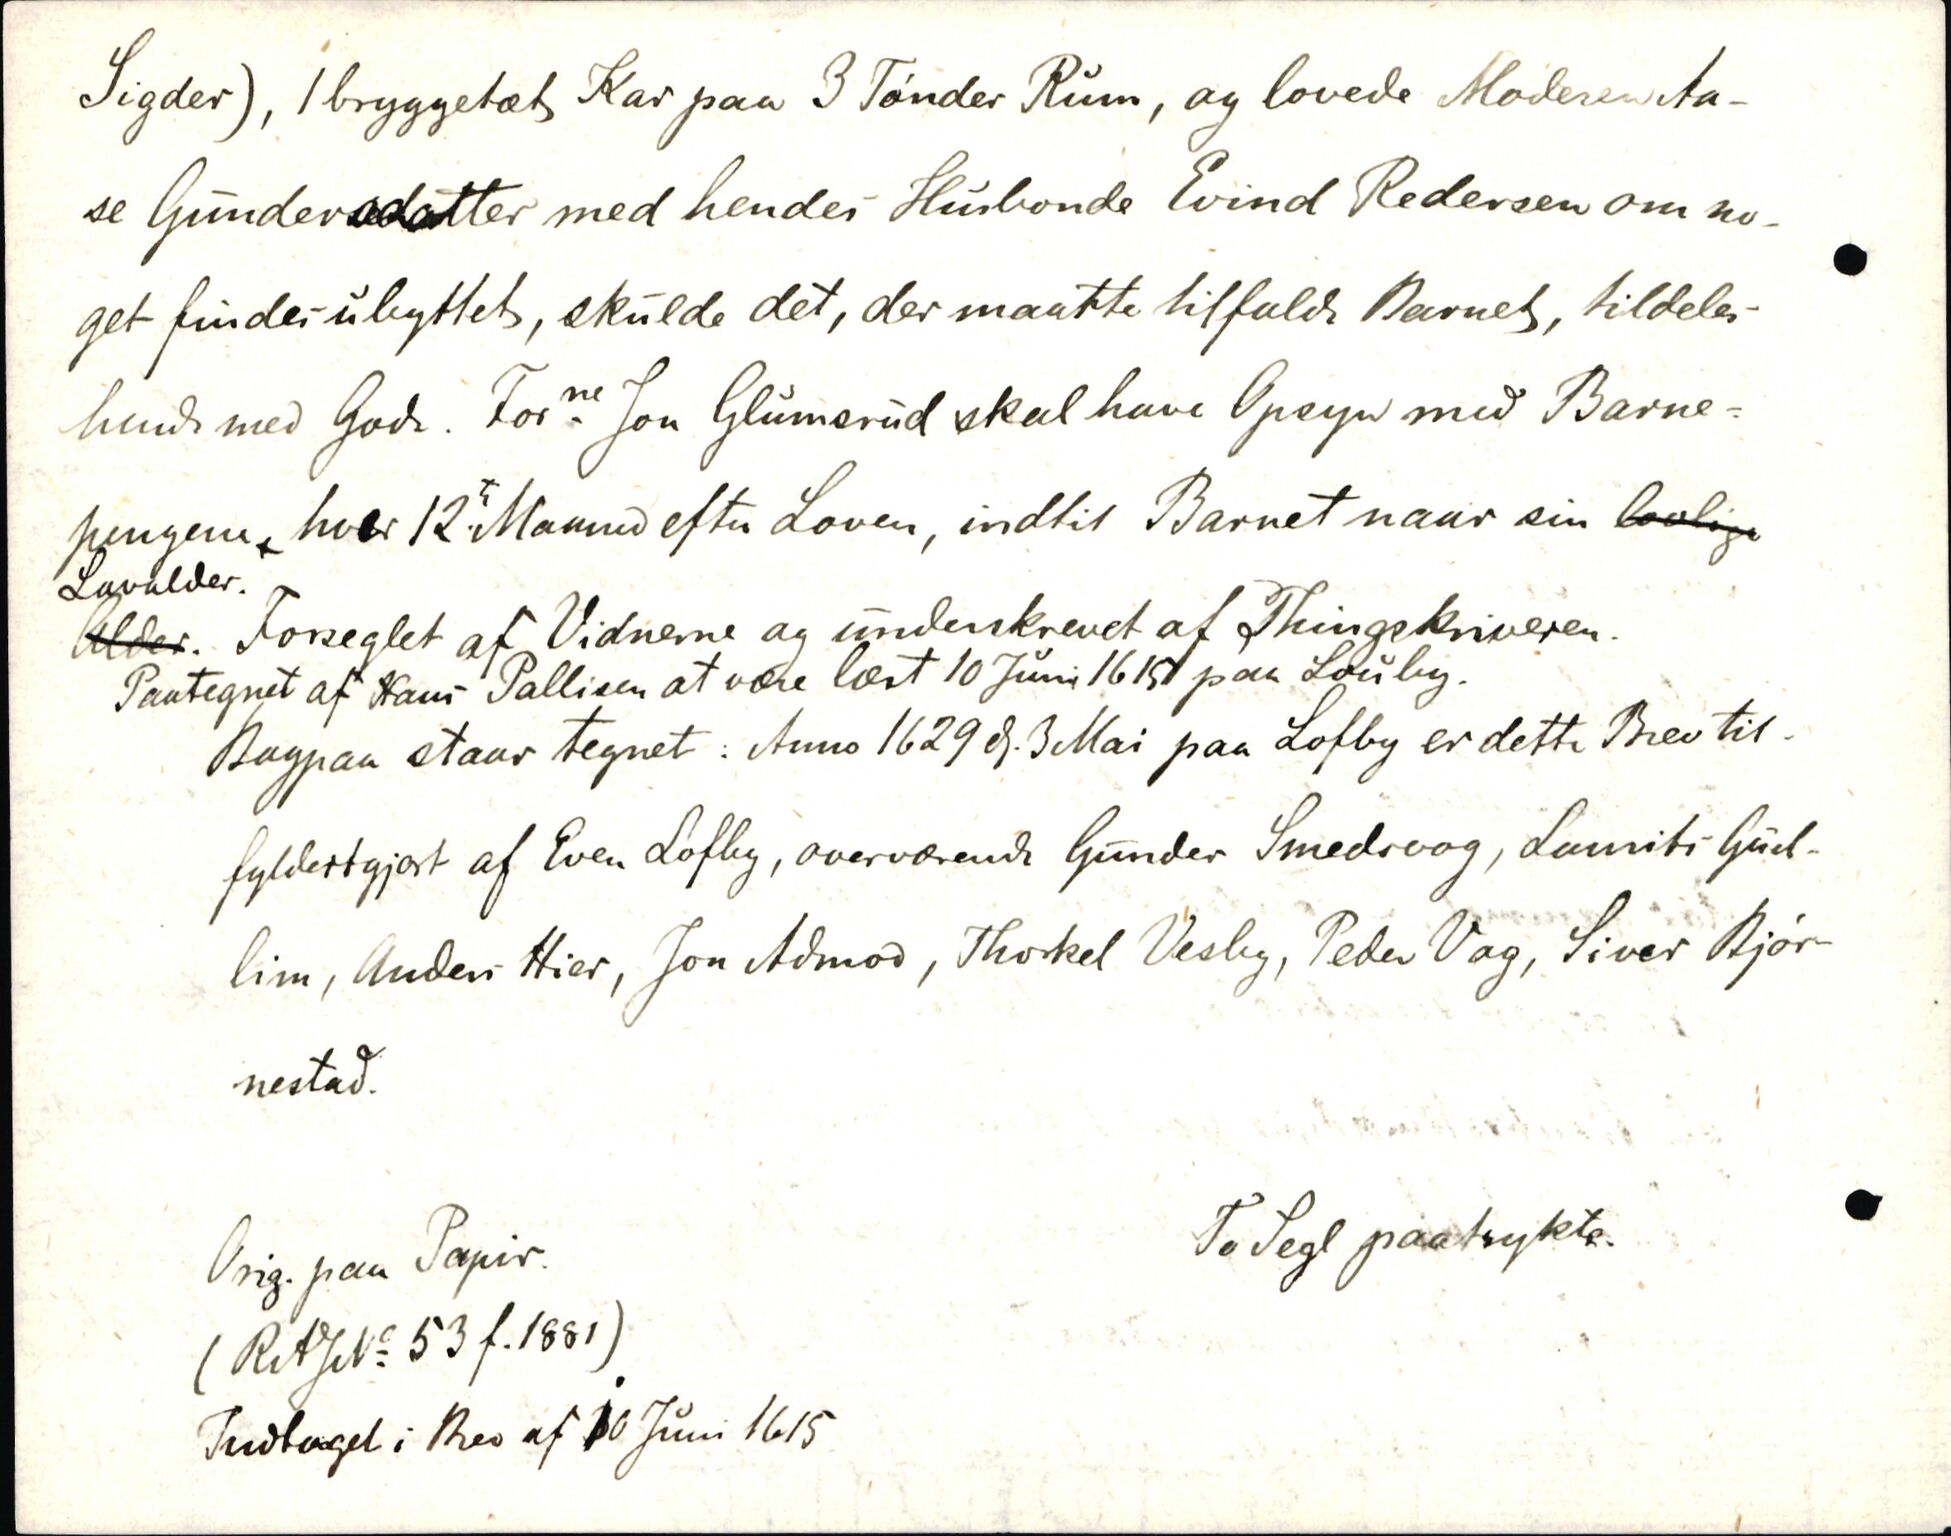 Sigder), 1 bryggetæt Kar paa 3 Tønder Rum, og lovede Moderen Aa-
se Gundersdatter med hendes Husbonde Evind Redersen om no-
get findes ubyttet, skulde det, der maatte tilfalde Barnet, tildeles
hende med Gode. Forne Jon Glumsrud skal have Opsyn med Barne-
pengene hver 12te Maaned efter Loven, indtil Barnet naar sin lovlige
Lavalder.
Alder. Forseglet af Vidnerne og underskrevet af Thingskriveren.
Paategnet af Hans Pallisen at være læst 10 Juni 1615 paa Louby.
Bagpaa staar tegnet: Anno 1629 d. 3 Mai paa Lofby er dette Brev til-
fyldestgjort af Even Lofby, overværende Gunder Smedsvog, Laurits Gul-
lim, Anders Hier, Jon Admod, Thorkel Vesby, Peder Vag, Siver Bjør-
nestad.
To Segl paatrykte.
Orig. paa Papir.
(RAJNo 53 f. 1881)
Indtaget i Brev af 10 Juni 1615